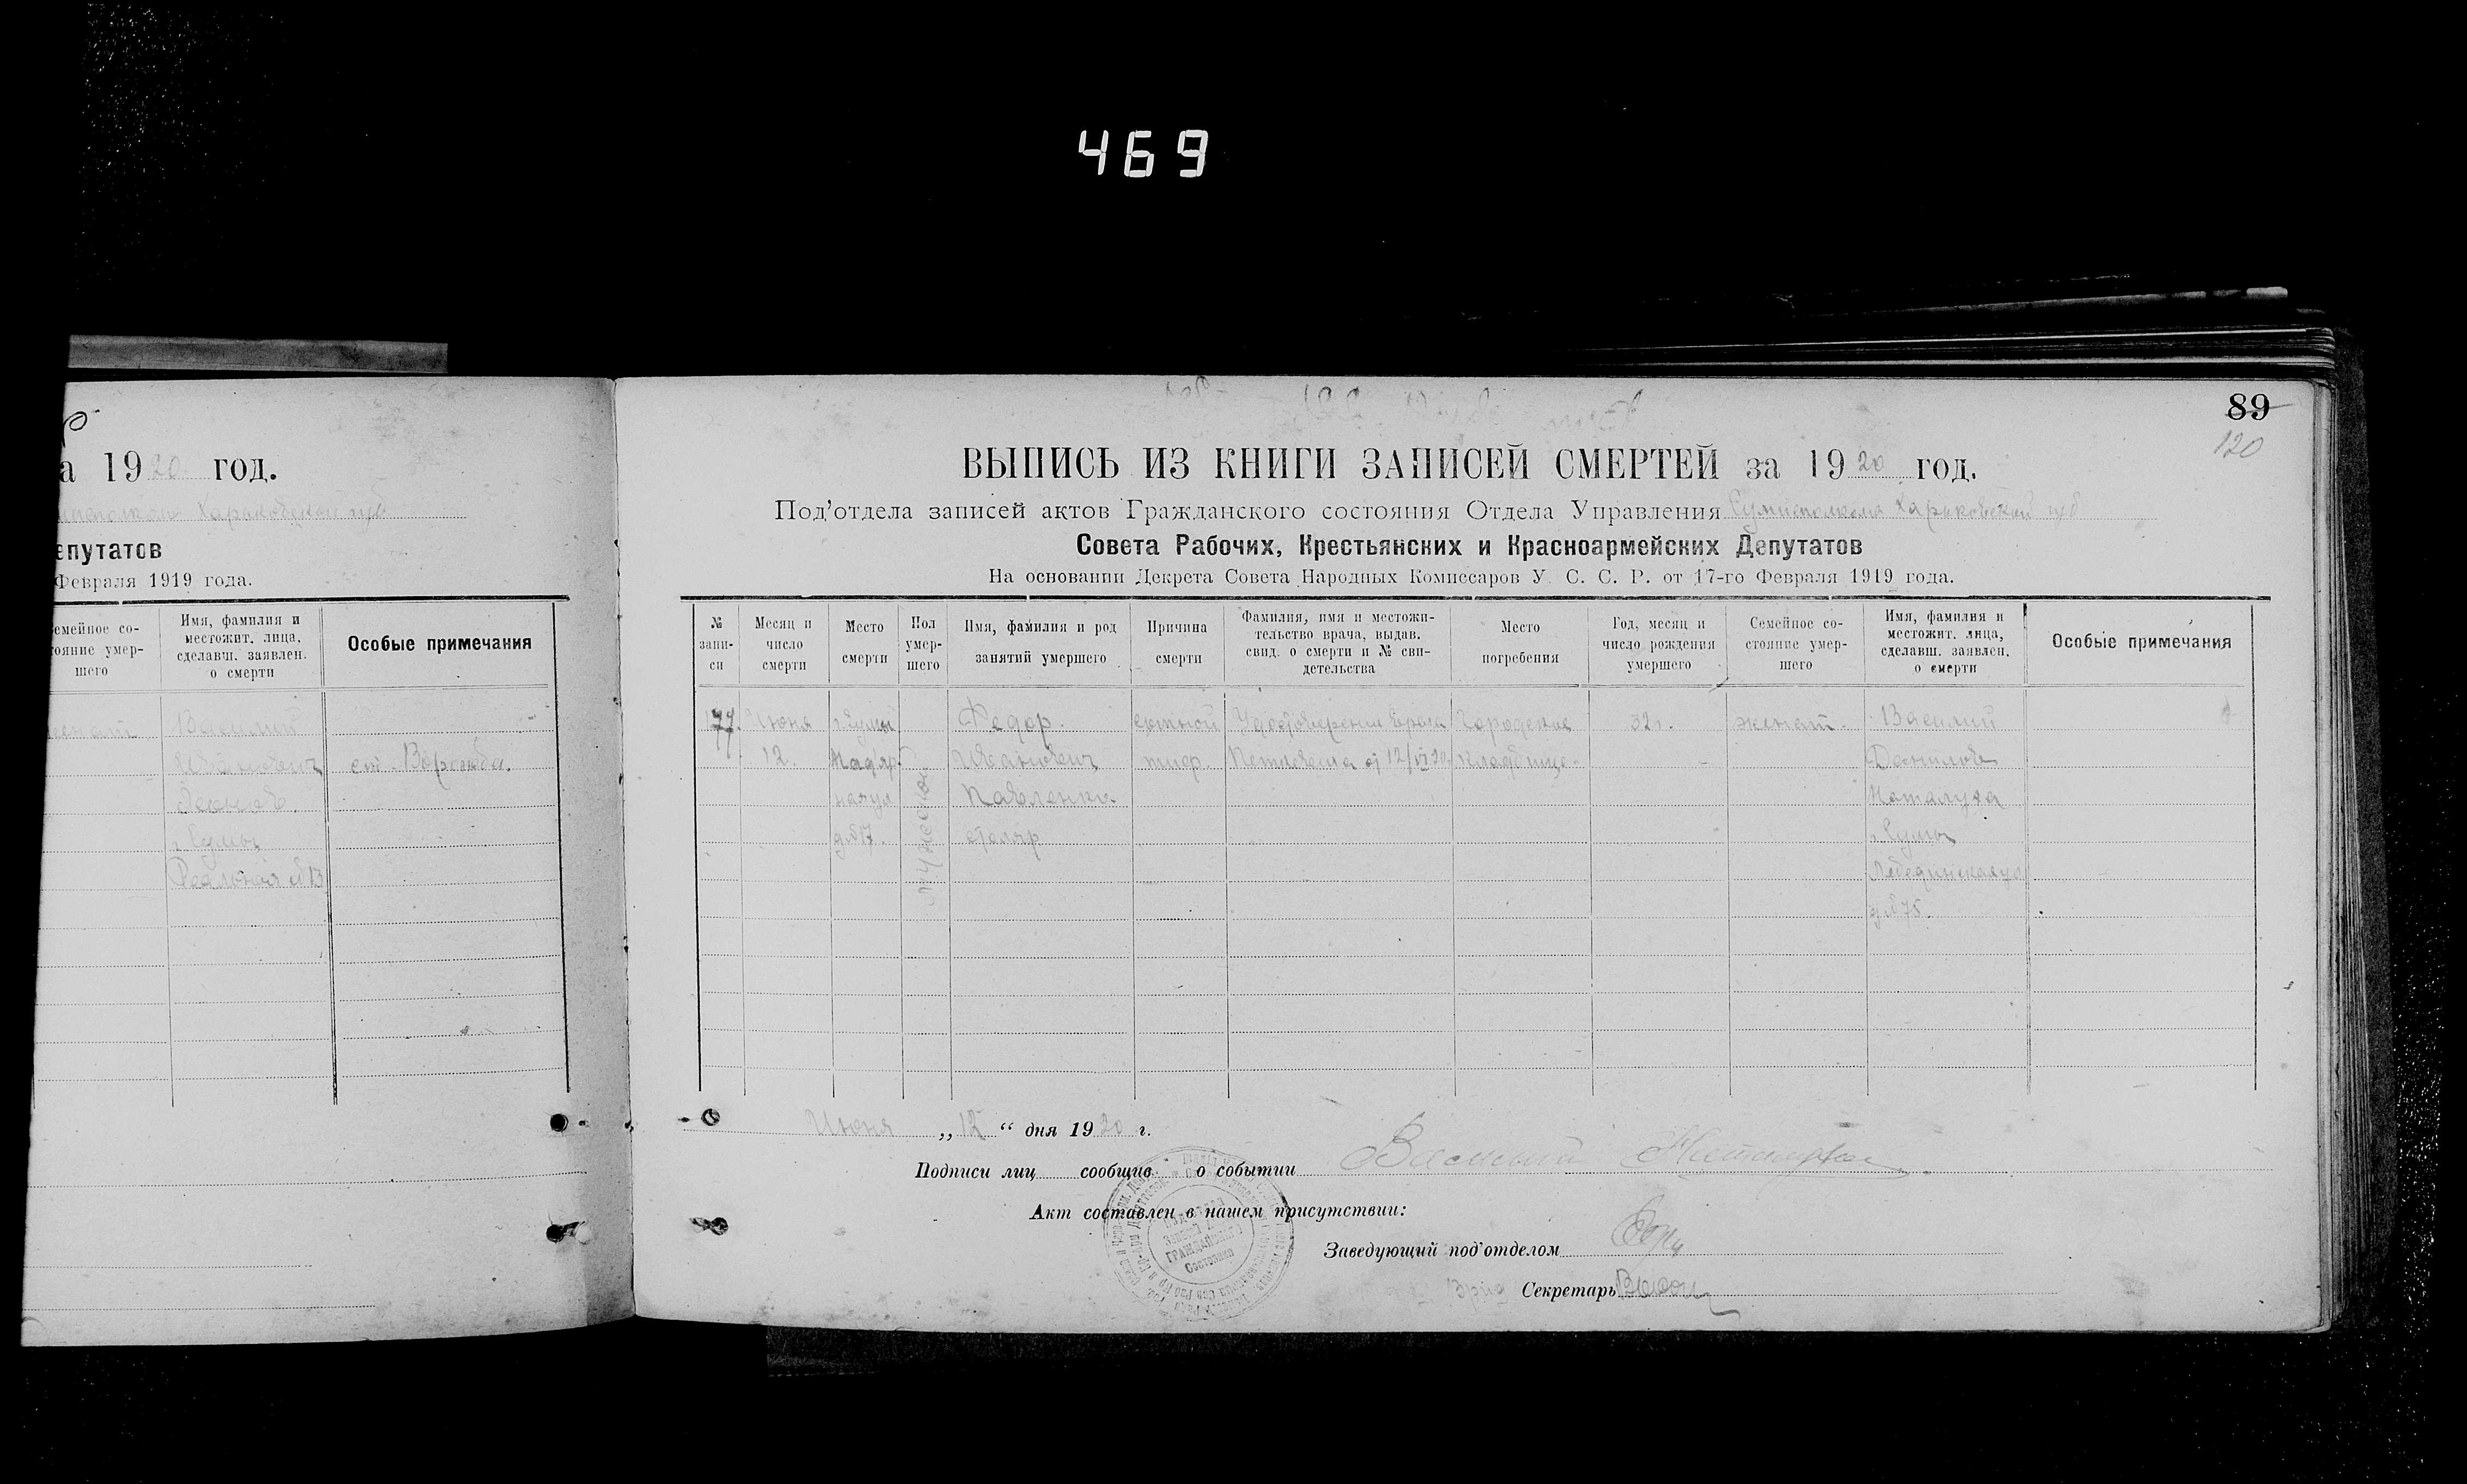 469
а 1920 год.
Харьковской губ
епутатов
Февраля 1919 года.
емейное со-
тояние умер-
шего
Имя, фамилия и
местожит. лица,
сделавш. заявлен.
о смерти
Особые примечания
женат
Василий
Иванович
г. Сумы
Реальная №13
ст. Ворожба.
89
120
ВЫПИСЬ ИЗ КНИГИ ЗАПИСЕЙ СМЕРТЕЙ за 1920 год.
Под'отдела записей актов Гражданского состояния Отдела Управления Сумисполкома Харьковской губ
Совета Рабочих, Крестьянских и Красноармейских Депутатов
На основании Декрета Совета Народных Комиссаров У. С. С. Р. от 17-го Февраля 1919 года.
№
запи-
си
Месяц и
число
смерти
Место
смерти
Пол
умер-
шего
Имя, фамилия и род
занятий умершего
Причина
смерти
Фамилия, имя и местожи-
тельство врача, выдав.
свид. о смерти и № сви-
детельства
Место
погребения
Год, месяц и
число рождения
умершего
Семейное со-
стояние умер-
шего
Имя, фамилия и
местожит. лица,
сделавш. заявлен.
о смерти
Особые примечания
77.
Июня
12.
г. Сумы
д №17.
мужеской
Федор
Иванович
Павленко
столяр
сыпной
тиф.
Удостоверение врача
от 12/VI 20.
Городское
кладбище.
32 г.
женат.
Василий
Данилов
Наталуха
г. Сумы
Лебединская ул
д №75.
Июня „12“ дня 1920 г.
Подписи лиц сообщив. о событии Василий Наталуха
Акт составлен в нашем присутствии:
Заведующий под'отделом
Врид Секретарь
ПОДОТДЕЛ
Записей
ГРАЖДАНСКОГО
Состояния